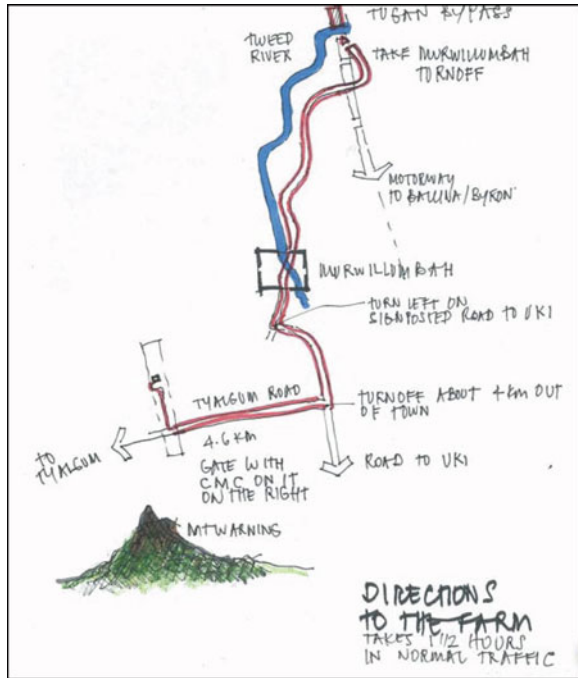 TUGAN BYPASS
TWEED
RIVER
TAKE MURWILLUMBAH
TORNOFF
MOTORWAY
TO BALLINA/BYRON
MURWILLUMBAH
TURN LEFT ON
SIGNPOSTED ROAD TO UKI
TYALGUM ROAD
TURNOFF ABOUT 4 KM OUT
OF TOWN
TO
TYALGUM
4.6 KM
GATE WITH
CMC ON IT
ON THE RIGHT
ROAD TO UKI
MT WARNING
DIRECTIONS
TO THE FARM
TAKES 1 1/2 HOURS
IN NORMAL TRAFFIC